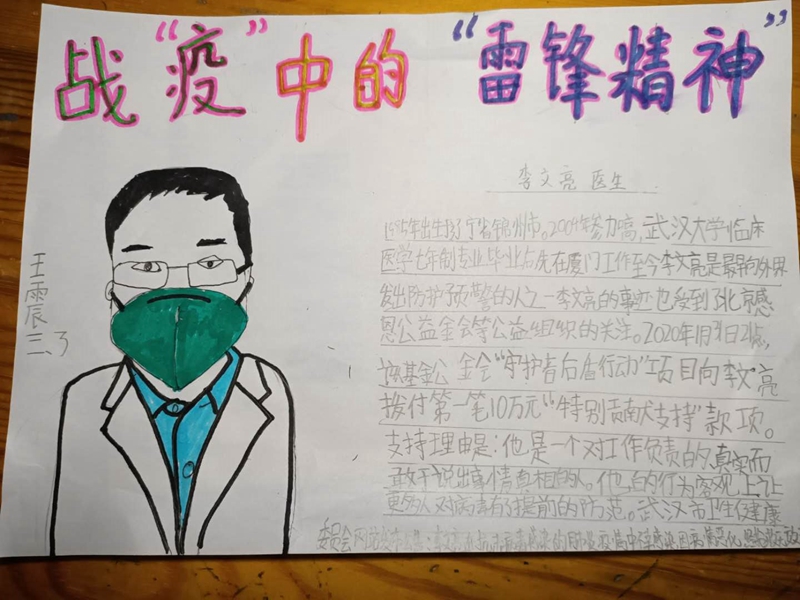 战“疫”中的“雷锋精神”
李文亮 医生
王霖三.3
年出生 宁省锦州市。 武汉大学临床
医学七年制专业毕业 先在厦门工作至今李文亮是最早向外界
发出防护预警的人之一李文亮的事迹也受到了北京感
恩公益金会等公益组织的关注。2020年1月31日
该基金公 金会“守护者后盾行动”项目向李文亮
拨付第一笔10万元“特别贡献支持”款项。
支持理由是:他是一个对工作负责的,真实而
敢于说出事情真相的人。他 的行为客观上让
更多人对病毒有了提前的防范。武汉市卫生健康
委员会网站